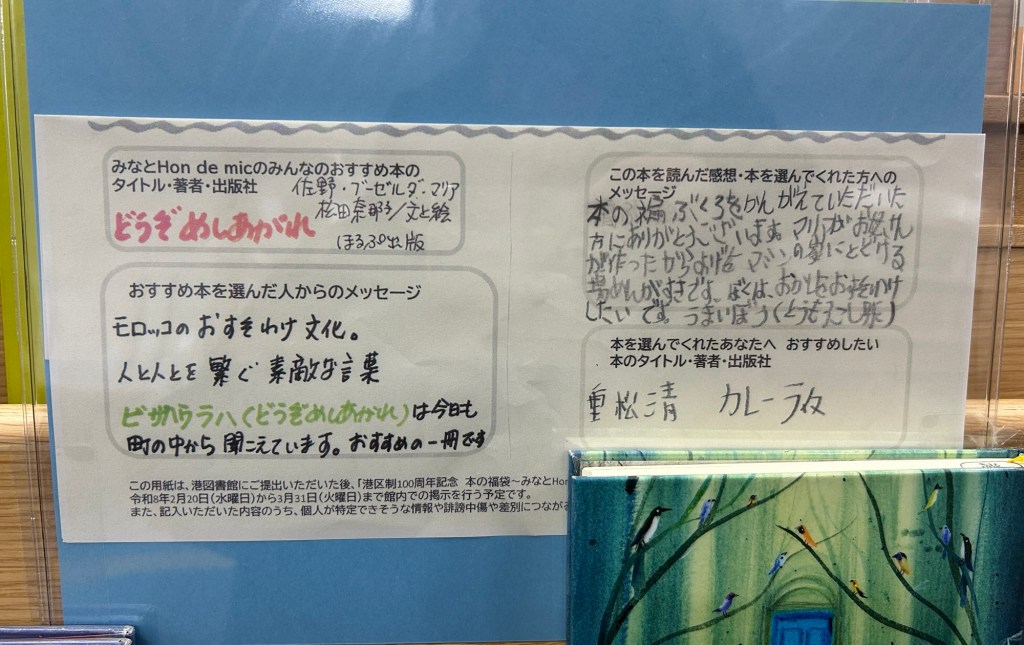 みなとHon de micのみんなのおすすめ本の
タイトル・著者・出版社
佐野・ブーゼルダ・マリア
松田奈那子/文と絵
どうぞめしあがれ
ほるぷ出版
おすすめ本を選んだ人からのメッセージ
モロッコのおすそわけ文化。
人と人とを繋ぐ素敵な言葉
ビサハウラハ(どうぞめしあがれ)は今日も
町の中から聞こえています。おすすめの一冊です
この用紙は、港図書館にご提出いただいた後、「港区制100周年記念 本の福袋~みなとHon
令和8年2月20日(水曜日)から3月31日(火曜日)まで館内での掲示を行う予定です。
また、記入いただいた内容のうち、個人が特定できそうな情報や誹謗中傷や差別につながる
この本を読んだ感想・本を選んでくれた方への
メッセージ
本の福ぶくろをかんがえていただいた
方にありがとうございます。マリアがお母さん
が作った
の家にとどける
場めんがすきです。ぼくは、おかしをおすそわけ
したいです。うまいぼう(とうもろこし味)
本を選んでくれたあなたへ おすすめしたい
本のタイトル・著者・出版社
重松清 カレーライス